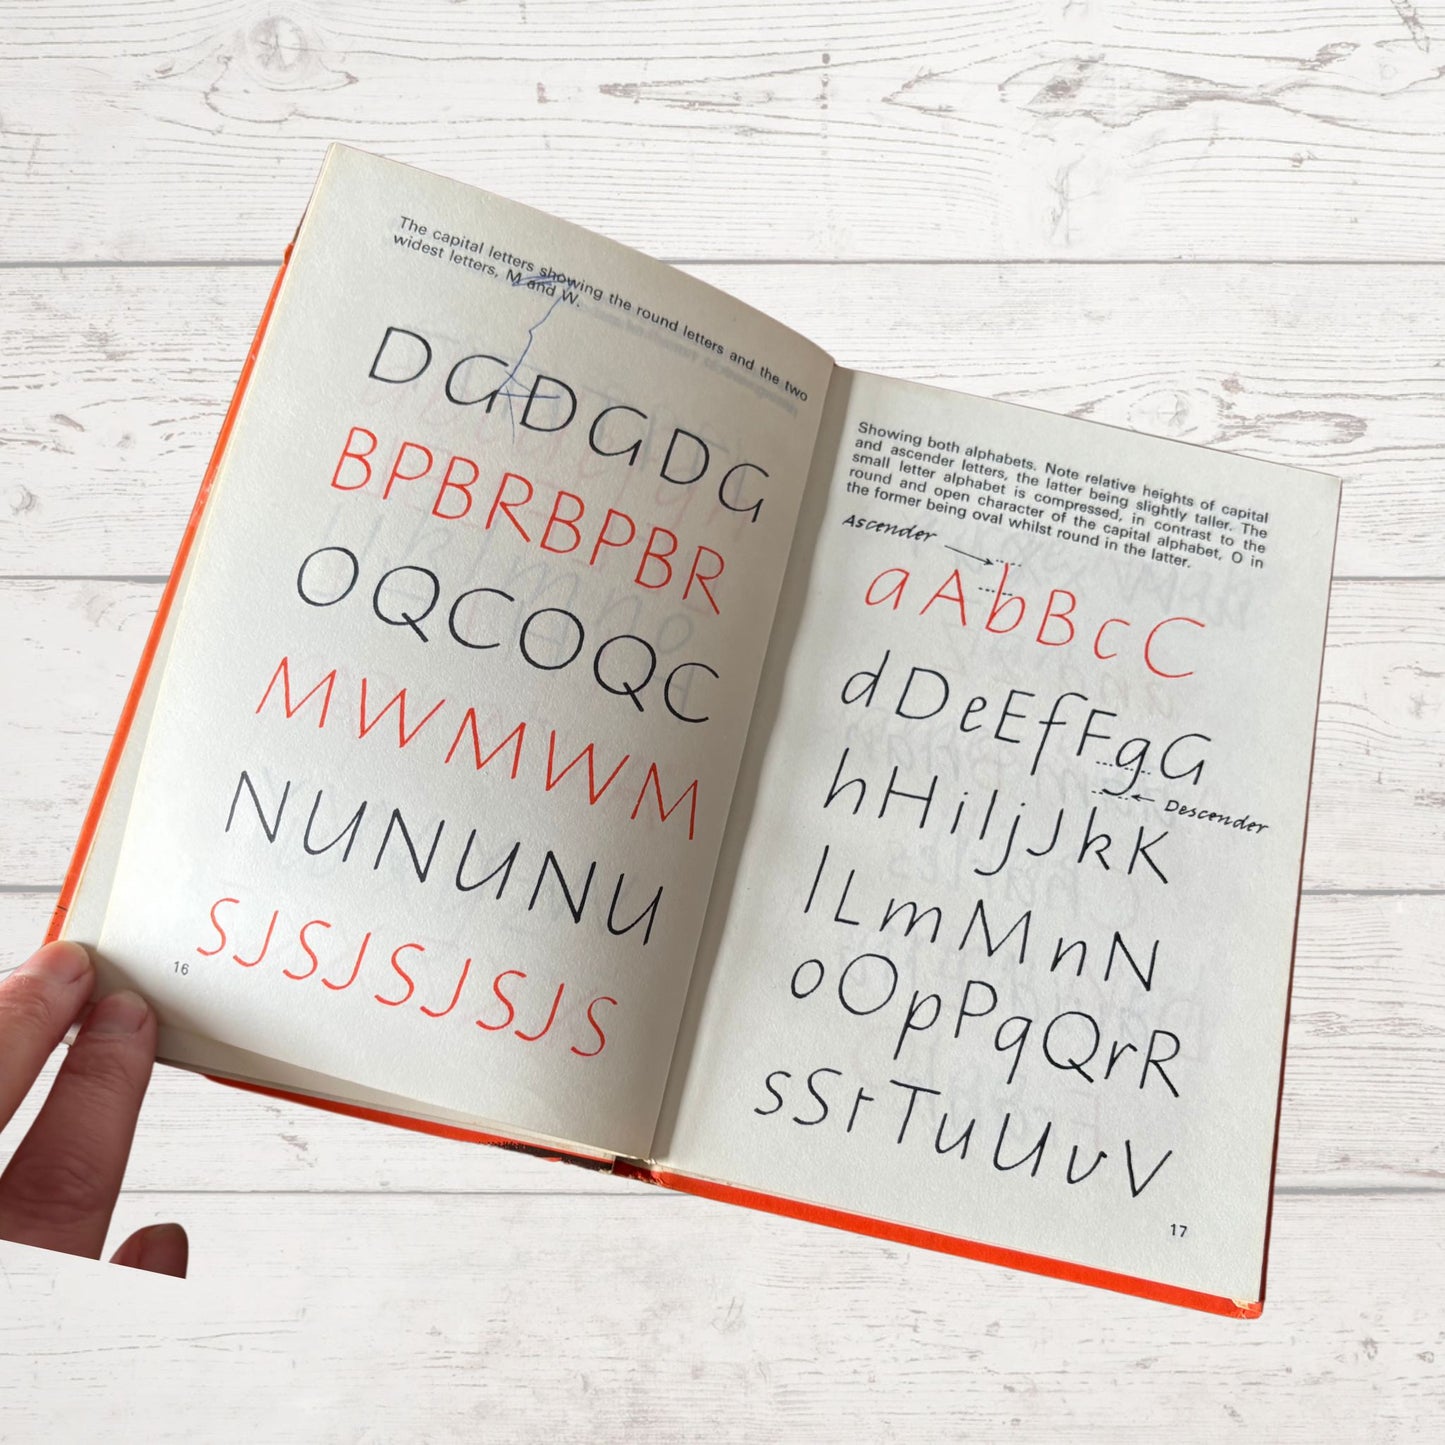 The capital letters showing the round letters and the two
widest letters, M and W.
DGDGDG
BPBRBPBR
OQCOQC
MWMWM
NUNUNU
SJSJSJSJS
16
Showing both alphabets. Note relative heights of capital
and ascender letters, the latter being slightly taller. The
small letter alphabet is compressed, in contrast to the
round and open character of the capital alphabet, O in
the former being oval whilst round in the latter.
Ascender
aAbBcC
dDeEfFgG
Descender
hHiIjJkK
lLmMnN
oOpPqQrR
sStTuUvV
17